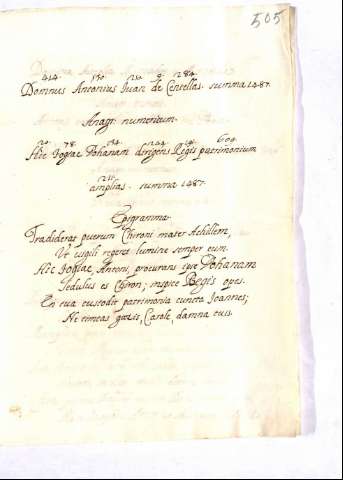 505
414. 150. 130. 9. 784.
Dominus Antonius Juan de Centellas. summa 1487.
Anagr: numericum.
Hic Jogiae Johanam dirigens Regis patrimonium
amplias. summa 1487.
Epigramma.
Tradideras puerum Chironi mater Achillem,
Ut vigili regeres lumine semper eum.
Hic Jogiae, Antoni, procurans ipse Johanam
Sedulus es Chiron; inspice Regis opes.
En tua custodit patrimonia cuncta Joannes;
Ne timeas gazis, Carole, damna tuis.